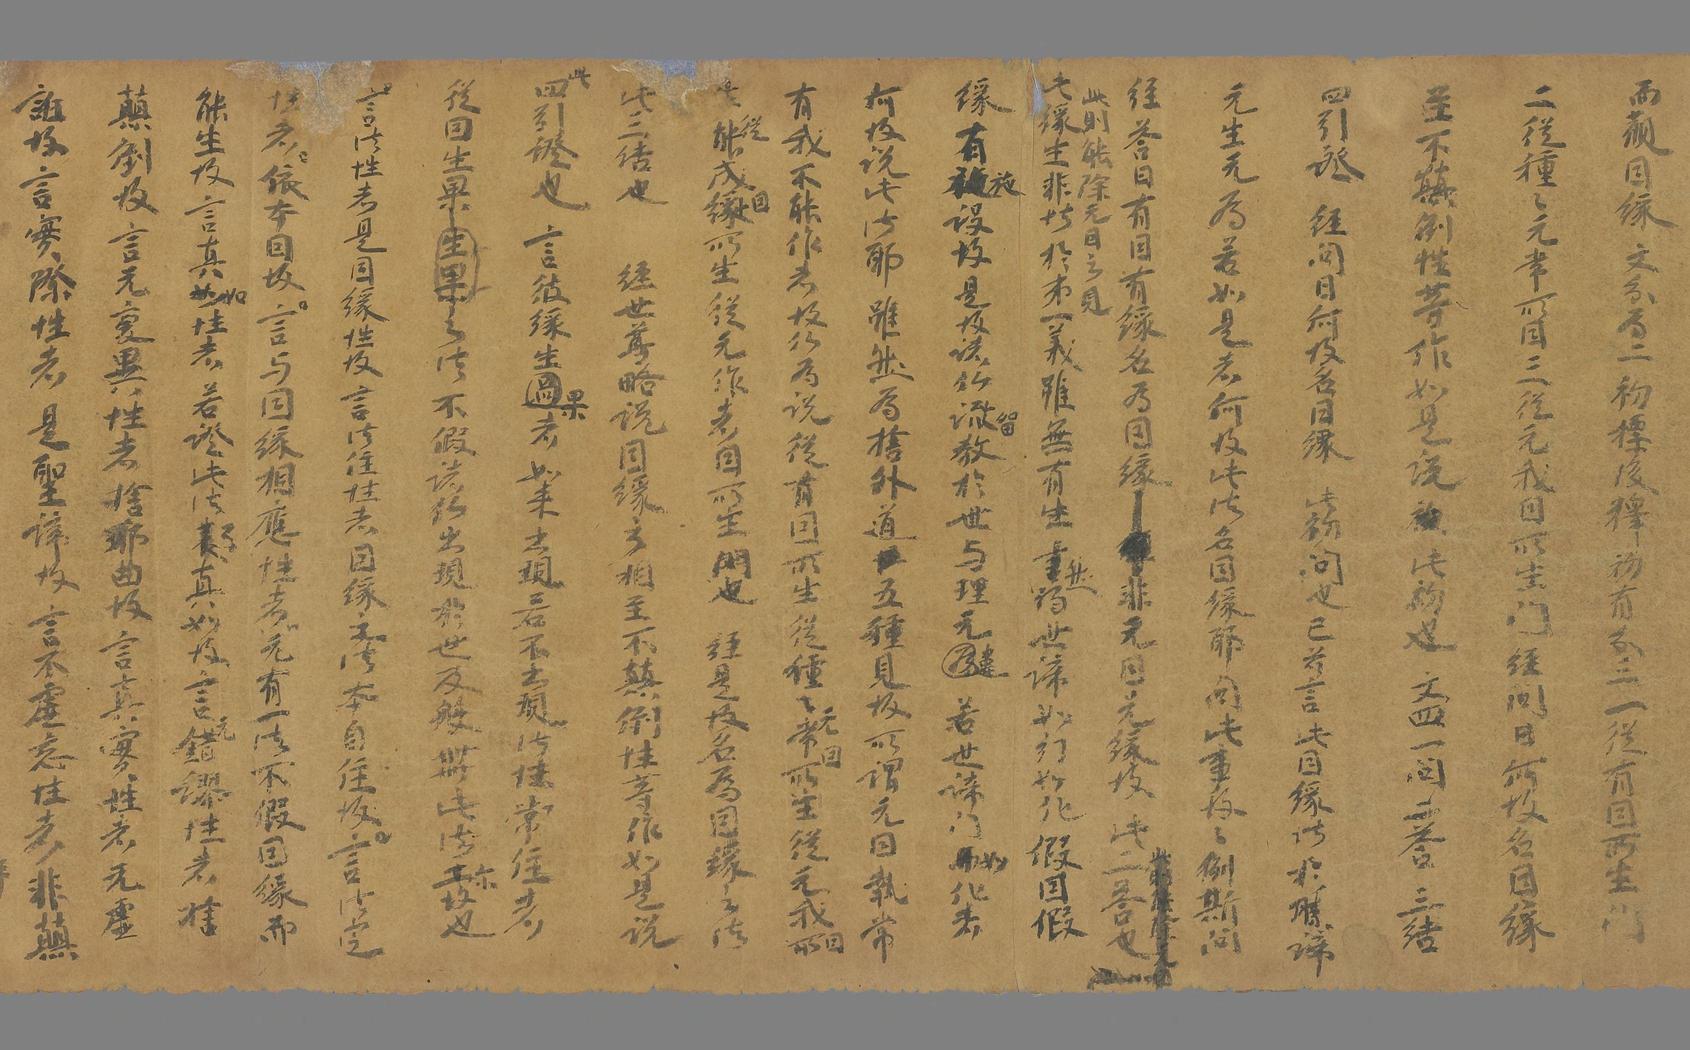 而觀因緣 文分為二 初標後釋 初有分三 一從有因所生門
二從種〻无常所因 三從无我因所生門 經問曰何故名因緣
至不顛倒性等作如是說 此初也 文四 一問 二答 三結
四引證 經問曰何故名因緣 此初問也 已前言此因緣法於勝諦
元生无為 若如是者何故此法名因緣耶 問此事故〻例斯問
經答曰有因有緣名為因緣 非无因无緣故 此二答也
此則能除无因之見
此緣生非對於第一義雖無有生 然世諦如幻如化 假因假
緣有施設故 是故諸仏流教於世与理无 若世諦門如化者
何故說此法耶 雖然為捨外道五種見故 所謂元因執常
有我不能作者 故仏為說從有因所生 從種〻无常因所生從无我因
能成緣所生 從无作者因所生門也 經是故名為因緣之法
此三結也 經世尊略說因緣之相至不顛倒性等作如是說
此四引證也 言彼緣生果者 如來出現若不出現法性常住者
從因生果之法不假諸仏出現於世及般此法亦故也
言法性者是因緣性故 言法住性者因緣法本自住故 言法定
性者 依本因故 言与因緣相應性者 无有一法不假因緣而
能生故 言真如性者 若證此法真如故 言无錯謬性者 捨
顛倒故 言无變異性者 捨耶曲故 言真實性者 无虛
誑故 言實際性者 是聖諦故 言不虛忘性者 非顛